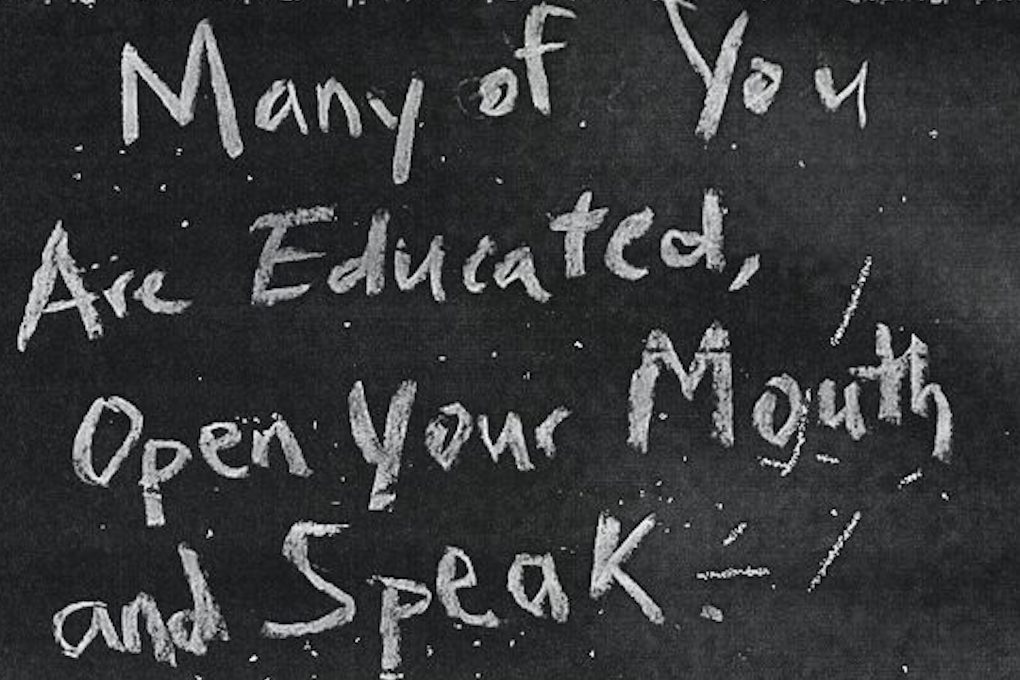 Many of You
Are Educated,
Open Your Mouth
and Speak.